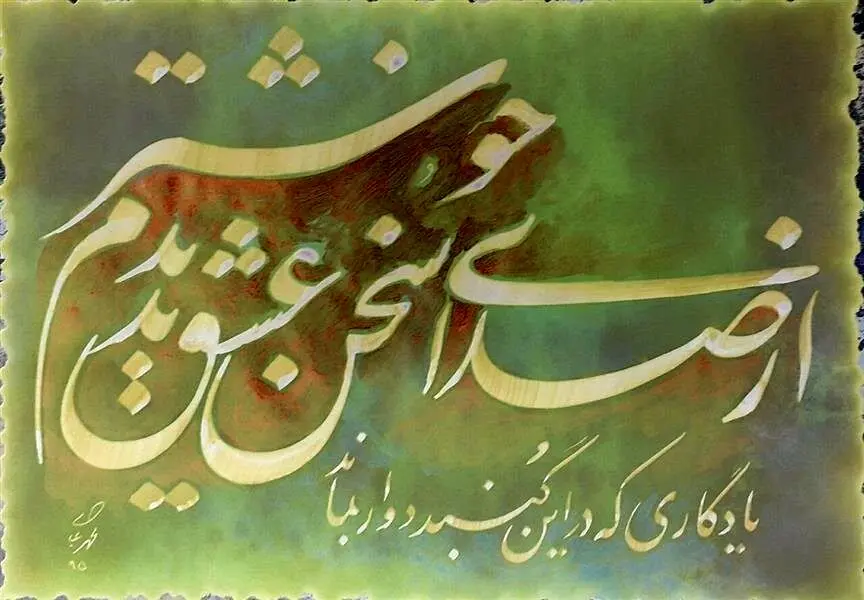 از صدای سخن عشق ندیدم خوشتر
یادگاری که در این گنبد دوار بماند
۹۵